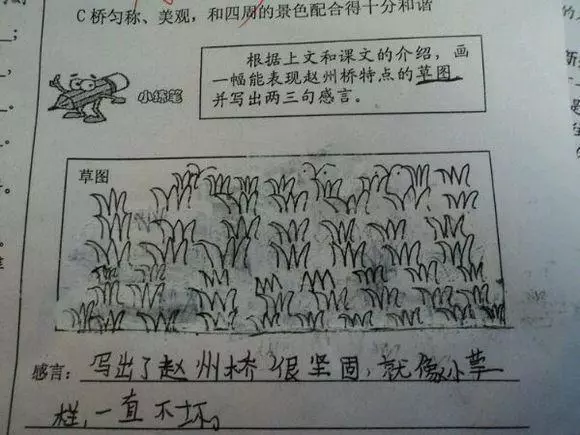 C桥匀称、美观,和四周的景色配合得十分和谐
根据上文和课文的介绍,画
一幅能表现赵州桥特点的草图
并写出两三句感言。
小练笔
草图
感言:写出了赵州桥很坚固,就像小草
样,一直不坏。